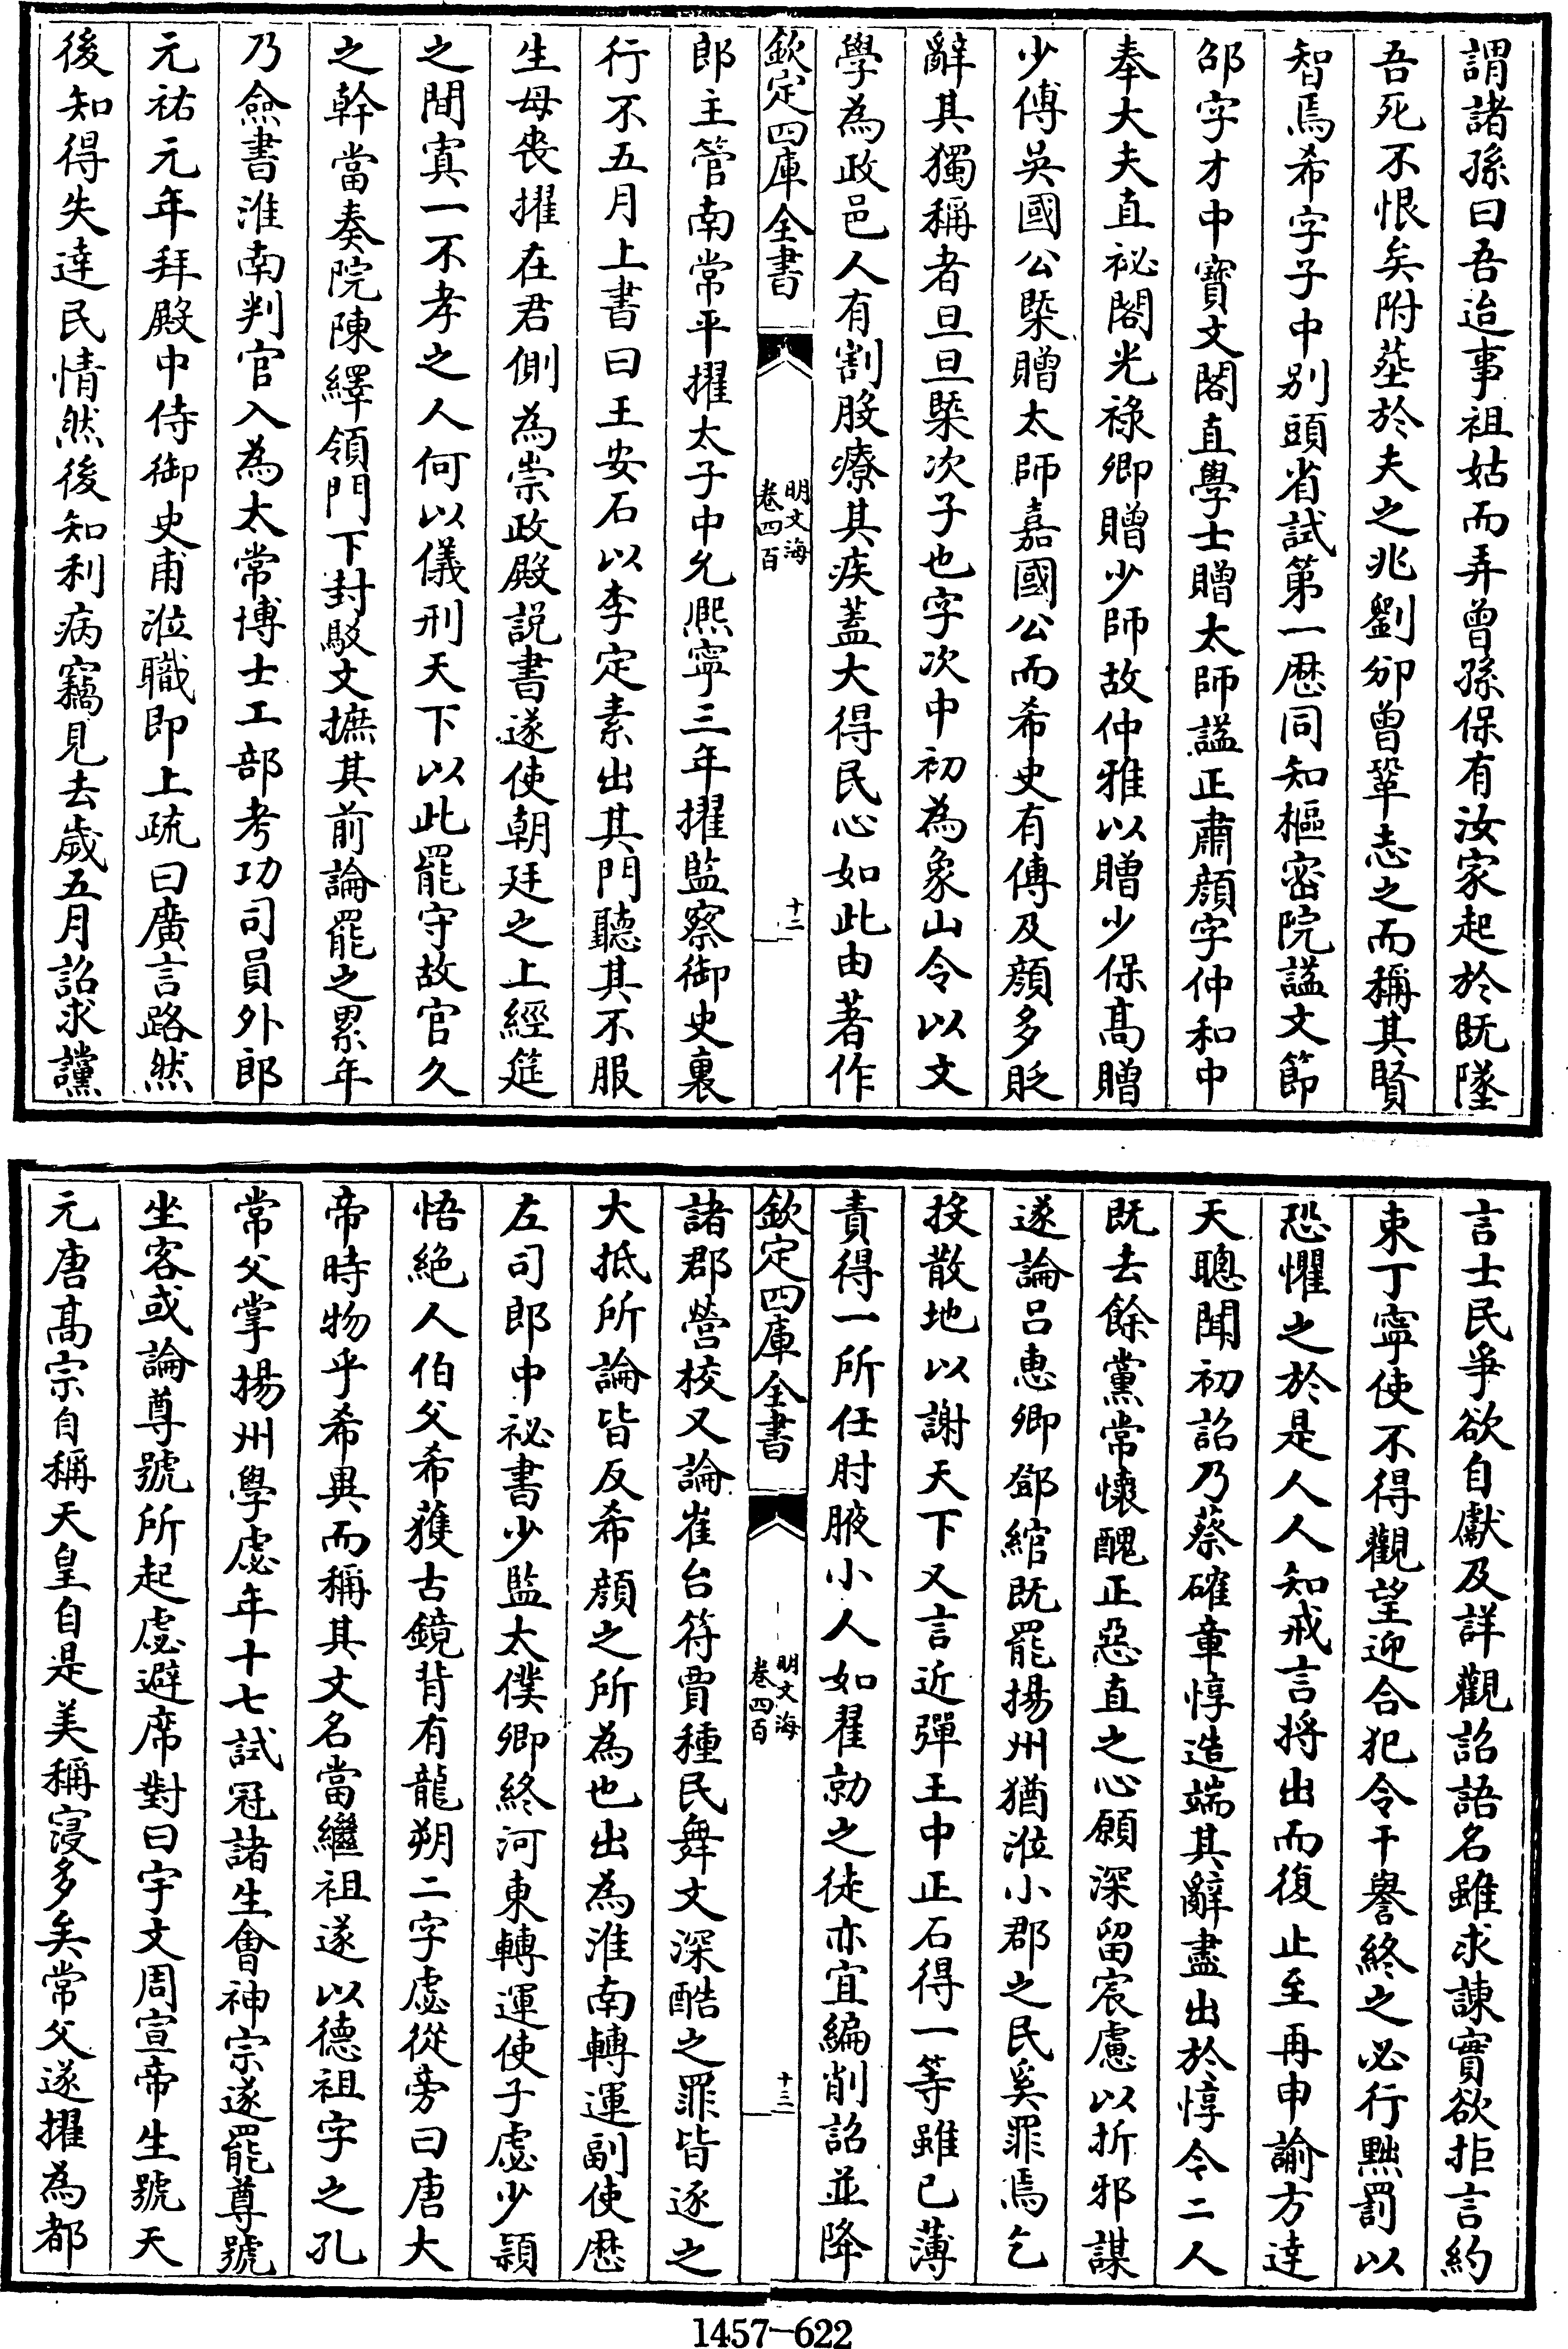 謂諸孫曰吾迨事祖姑而弄曾孫保有汝家起於既墜
吾死不恨矣附塟於夫之兆劉邠曾鞏志之而稱其賢
智焉希字子中别頭省試第一歴同知樞密院諡文節
邵字才中寳文閣直學士贈太師諡正肅顔字仲和中
奉大夫直祕閣光祿卿贈少師故仲雅以贈少保髙贈
少傅英國公槩贈太師嘉國公而希史有傳及顔多貶
辭其獨稱者旦旦槩次子也字次中初為象山令以文
學為政邑人有割股療其疾葢大得民心如此由著作
欽定四庫全書
明文海
卷四百
十二
郎主管南常平擢太子中允熈寧三年擢監察御史裏
行不五月上書曰王安石以李定素出其門聽其不服
生母喪擢在君側為崇政殿説書遂使朝廷之上經筵
之間寘一不孝之人何以儀刑天下以此罷守故官久
之幹當奏院陳繹領門下封駁文摭其前論罷之累年
乃僉書淮南判官入為太常博士工部考功司員外郎
元祐元年拜殿中侍御史甫涖職即上疏曰廣言路然
後知得失逹民情然後知利病竊見去歳五月詔求讜
言士民爭欲自獻及詳觀詔語名雖求諫實欲拒言約
束丁寧使不得觀望迎合犯令干譽終之必行黜罰以
恐懼之於是人人知戒言將出而復止至再申諭方逹
天聰聞初詔乃蔡確章惇造端其辭盡出於惇今二人
既去餘黨常懷醜正惡直之心願深留宸慮以折邪謀
遂論吕惠卿鄧綰既罷揚州猶涖小郡之民奚罪焉乞
投散地以謝天下又言近彈王中正石得一等雖已薄
責得一所任肘腋小人如翟勍之徒亦宜編削詔並降
欽定四庫全書
明文海
卷四百
十三
諸郡營校又論崔台符賈種民舞文深酷之罪皆逐之
大抵所論皆反希顔之所為也出為淮南轉運副使歴
左司郎中祕書少監太僕卿終河東轉運使子虙少穎
悟絶人伯父希獲古鏡背有龍朔二字虙從旁曰唐大
帝時物乎希異而稱其文名當繼祖遂以德祖字之孔
常父掌揚州學虙年十七試冠諸生會神宗遂罷尊號
坐客或論尊號所起虙避席對曰宇文周宣帝生號天
元唐髙宗自稱天皇自是美稱寖多矣常父遂擢為都
1457-622